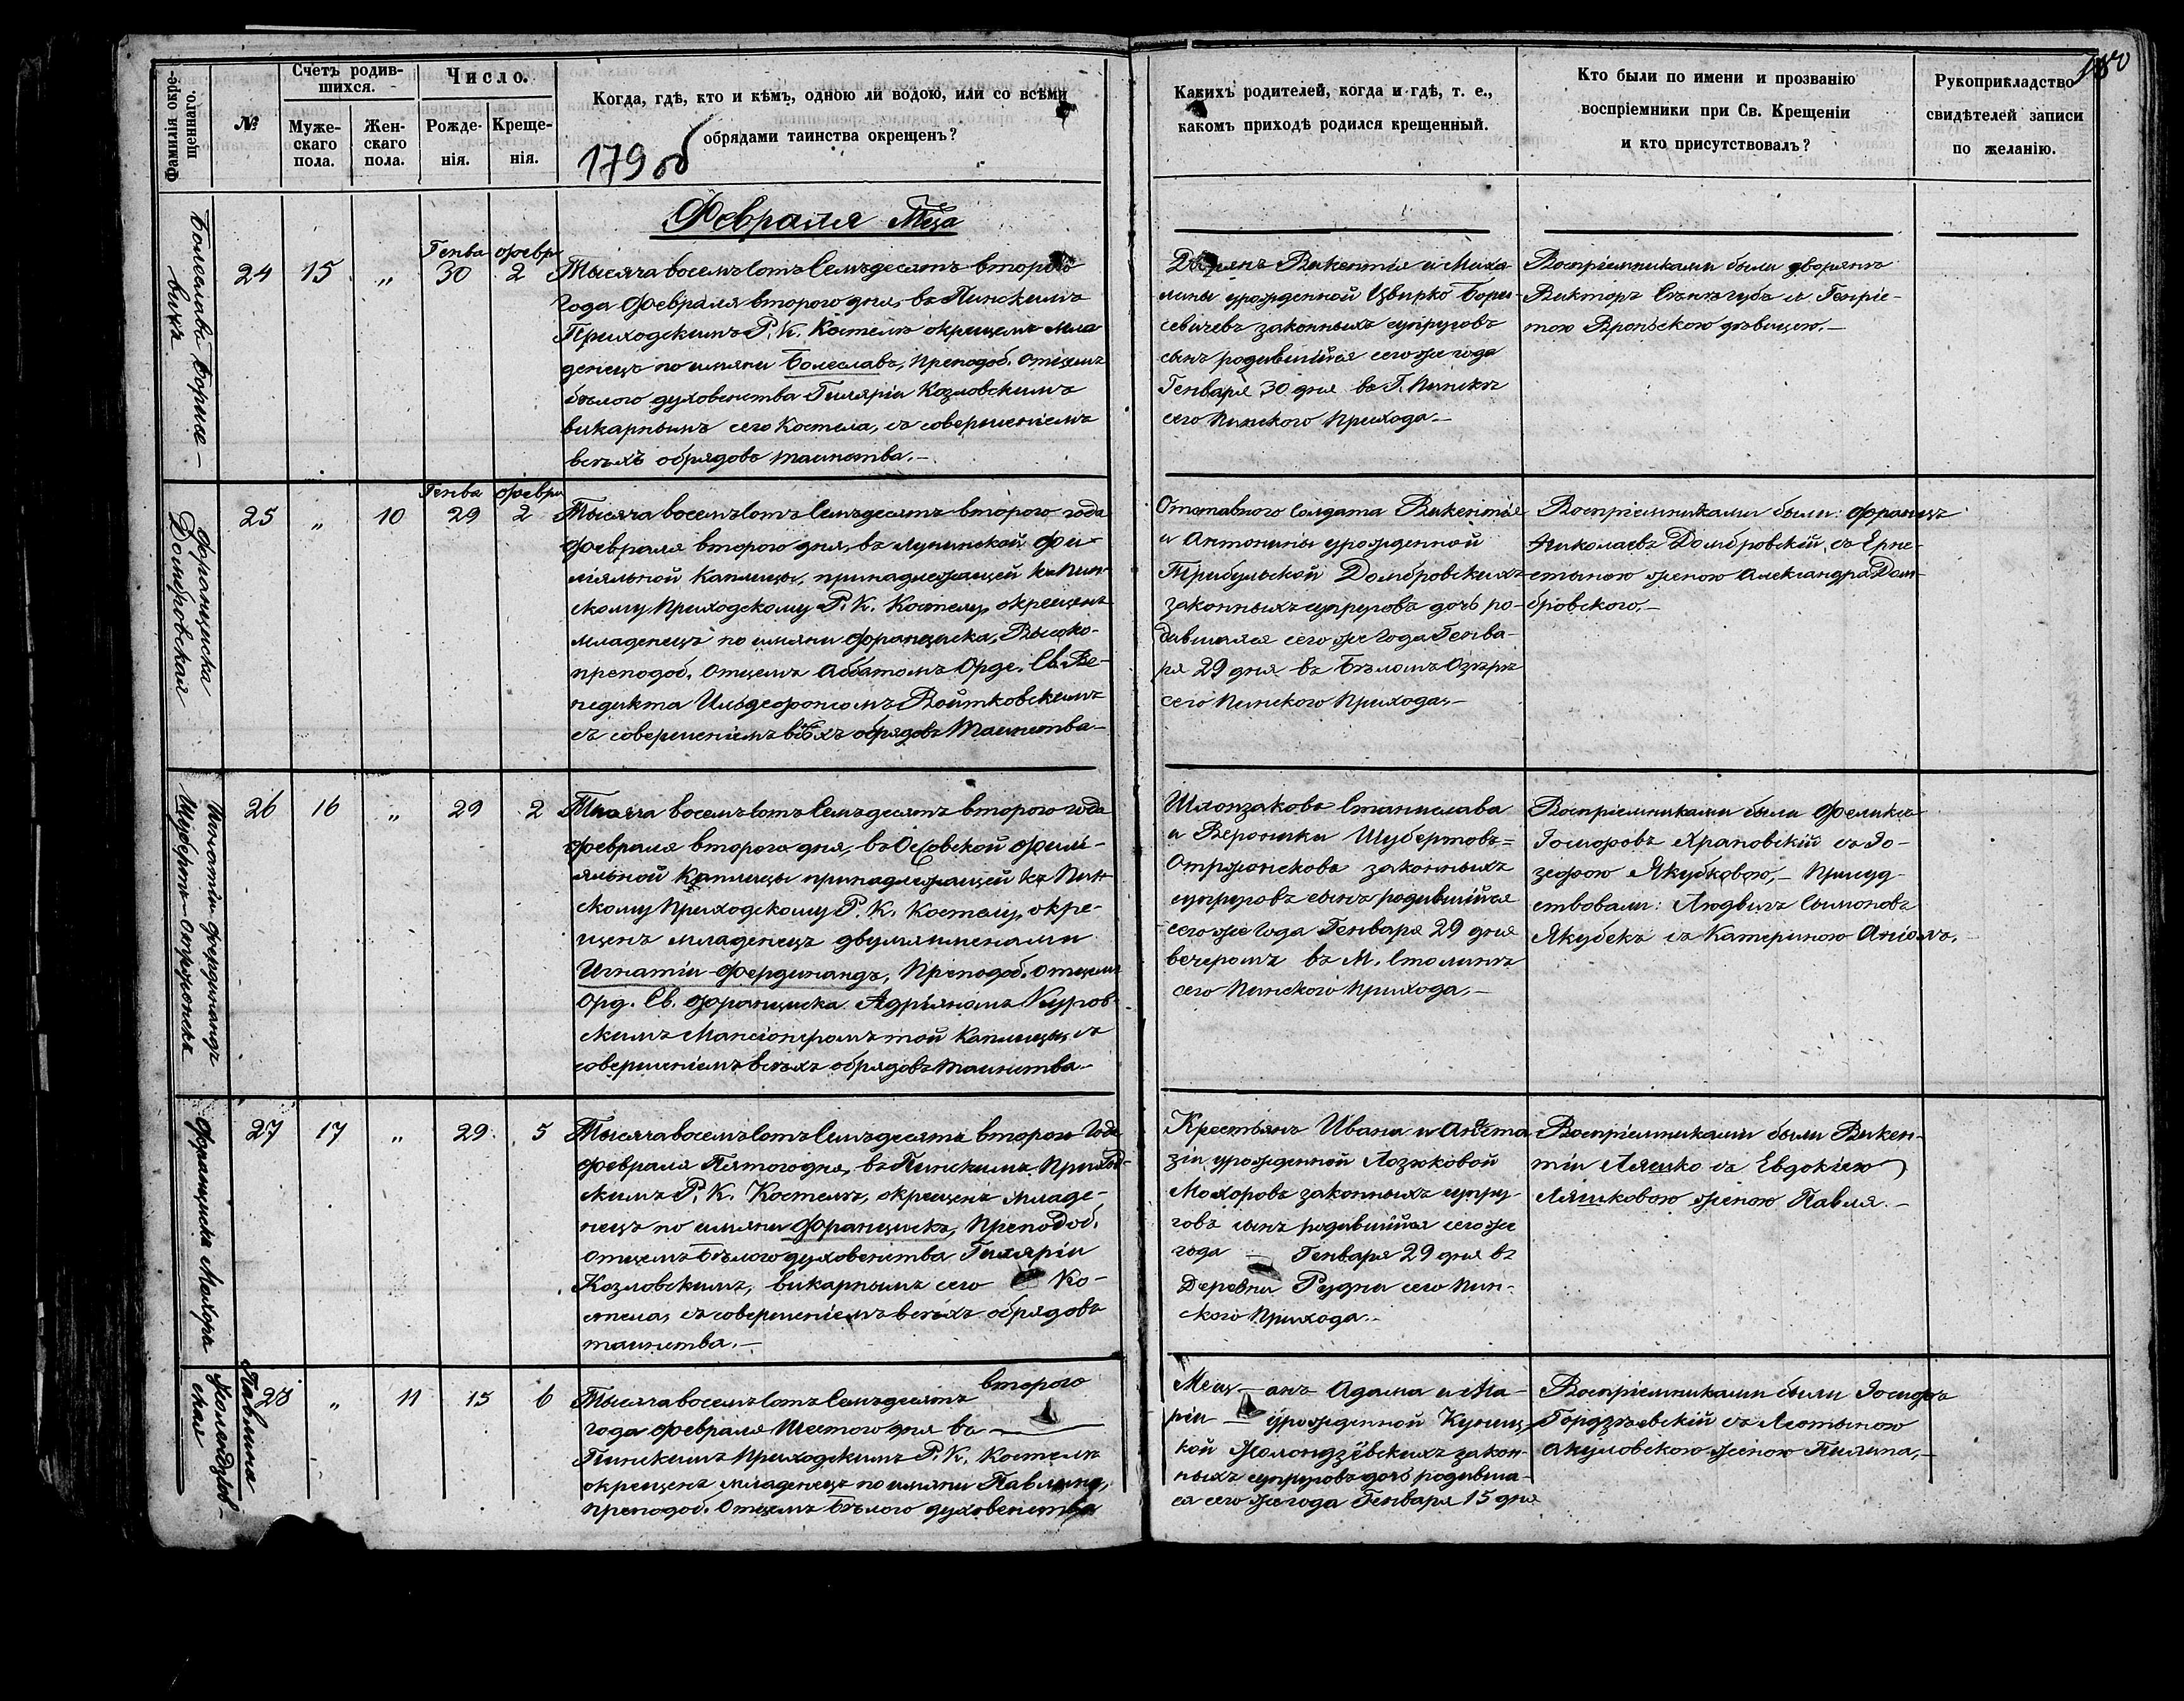 180
Фамилія окре-
щеннаго.
№
Счетъ родив-
шихся.
Муже-
скаго
пола.
Жен-
скаго
пола.
Число.
Рожде-
нія.
Креще-
нія.
Когда, гдѣ, кто и кѣмъ, одною ли водою, или со всѣми
обрядами таинства окрещенъ?
179 об
Какихъ родителей, когда и гдѣ, т. е.,
какомъ приходѣ родился крещенный.
Кто были по имени и прозванію
воспріемники при Св. Крещеніи
и кто присутствовалъ?
Рукоприкладство
свидѣтелей записи
по желанію.
Февраля Мца
Болеславъ Борисе-
вичъ
24
15
„
Генва
30
Февр
2
Тысяча восемьсотъ семьдесятъ второго
года Февраля второго дня, въ Пинскимъ
Приходскимъ Р. К. Костелѣ окрещенъ мла
денецъ по имяни Болеславъ, Преподоб. Отцемъ
бѣлого духовенства Гиляріи Козловскимъ
викарнымъ сего Костела, съ совершеніемъ
всѣхъ обрядовъ таинства.—
Дворянъ Викентія и Миха-
лины урожденной Цвирко Бори-
севичевъ законныхъ супруговъ
сынъ родившійся сегоже года
Генваря 30 дня въ Г. Пинскѣ
сего Пинского Прихода.—
Воспріемниками были дворянъ
Викторъ с Генріе-
тою дѣвицею.—
Франциска
Домбровская
25
„
10
Генва
29
Февр
2
Тысяча восемьсотъ семьдесятъ второго года
Февраля второго дня, въ Лунинской Фи-
ліяльной Каплицы, принадлежащей къ Пин-
скому Приходскому Р. К. Костелу, окрещенъ
младенецъ по имяни Франциска, Высоко-
преподоб. Отцемъ Аббатомъ Орде. Св. Бе-
недикта Ильдефонсомъ Войтковскимъ
съ совершеніемъ всѣхъ обрядовъ Таинства—
Отставного Солдата Викентія
и Антонины урожденной
Трибульской Домбровскихъ
законныхъ супруговъ дочь ро-
дившаяся сегоже года Генва-
ря 29 дня въ Бѣломъ Озерѣ
сего Пинского Прихода.—
Воспріемниками были: Францъ
Николаевъ Домбровскій, съ Ерне-
стыною женою Александра Дом-
бровского.—
Игнатіи-Фердинандъ
Шубертъ-Отржонсекъ
26
16
„
29
2
Тысяча восемьсотъ семьдесятъ второго года
Февраля второго дня, въ Осовской Филі-
яльной Каплицы принадлежащей къ Пин-
скому Приходскому Р. К. Костелу, окре-
щенъ младенецъ двумя именами
Игнатіи-Фердинандъ, Преподоб. Отцемъ
Орд. Св. Франциска Адріяномъ Куров-
скимъ Мансіонеромъ той Каплицы, съ
совершеніемъ всѣхъ обрядовъ Таинства.—
Шлонзаковъ Станислава
и Вероники Шубертовъ=
Отржонсковъ законныхъ
супруговъ сынъ родившійся
сегоже года Генваря 29 дня
вечеромъ въ М. Столинѣ
сего Пинского Прихода.—
Воспріемниками были Феликсъ
Іосифовъ Храповскій съ Іо-
зефою Якубковою,— Присуд-
ствовали: Людвигъ Сымоновъ
Якубекъ съ Катериною
Францискъ Мохоръ
27
17
„
29.
5
Тысяча восемьсотъ семьдесятъ второго Года
Февраля Пятого дня, въ Пинскимъ Приход-
скимъ Р. К. Костелѣ, окрещенъ младе-
нецъ по имяни Францискъ, Преподоб.
Отцемъ Бѣлого духовенства Гиляріи
Козловскимъ, викарнымъ сего Ко-
стела, съ совершеніемъ всѣхъ обрядовъ
таинства.—
Крестьянъ Ивана и Анѣста
зіи урожденной Лозюковой
Мохоровъ законныхъ супру-
говъ сынъ родившійся сегоже
года Генваря 29 дня въ
Деревни Рудни сего Пин-
ского Прихода.—
Воспріемниками были Викен-
тіи Ляшко съ Евдокіею
Ляшковою женою Павля.—
Павлина
Жолендзіов-
ская
28
„
11
15
6
Тысяча восемьсотъ семьдесятъ второго
года Февраля Шестого дня въ
Пинскимъ Приходскимъ Р. К. Костелѣ
окрещенъ младенецъ по имяни Павлина,
Преподоб. Отцемъ Бѣлого духовенства
Мещ— анъ Адама и Ма-
ріи урожденной
кой Жолондзёвскихъ закон-
ныхъ супруговъ дочь родивша-
ся сего же года Генваря 15 дня
Воспріемниками были Іосифъ
Гордзѣевскій съ Леотыною
Акуловскою женою Пилипа.—